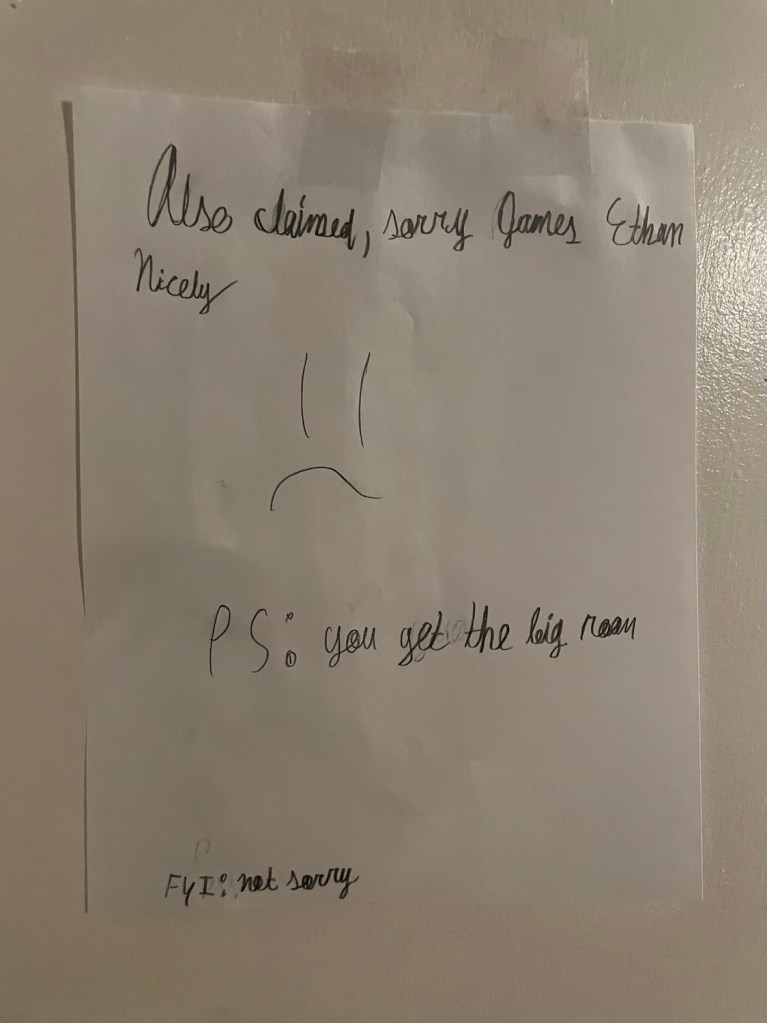 Also claimed, sorry James Ethan
Nicely
PS: you get the big room
FYI: not sorry